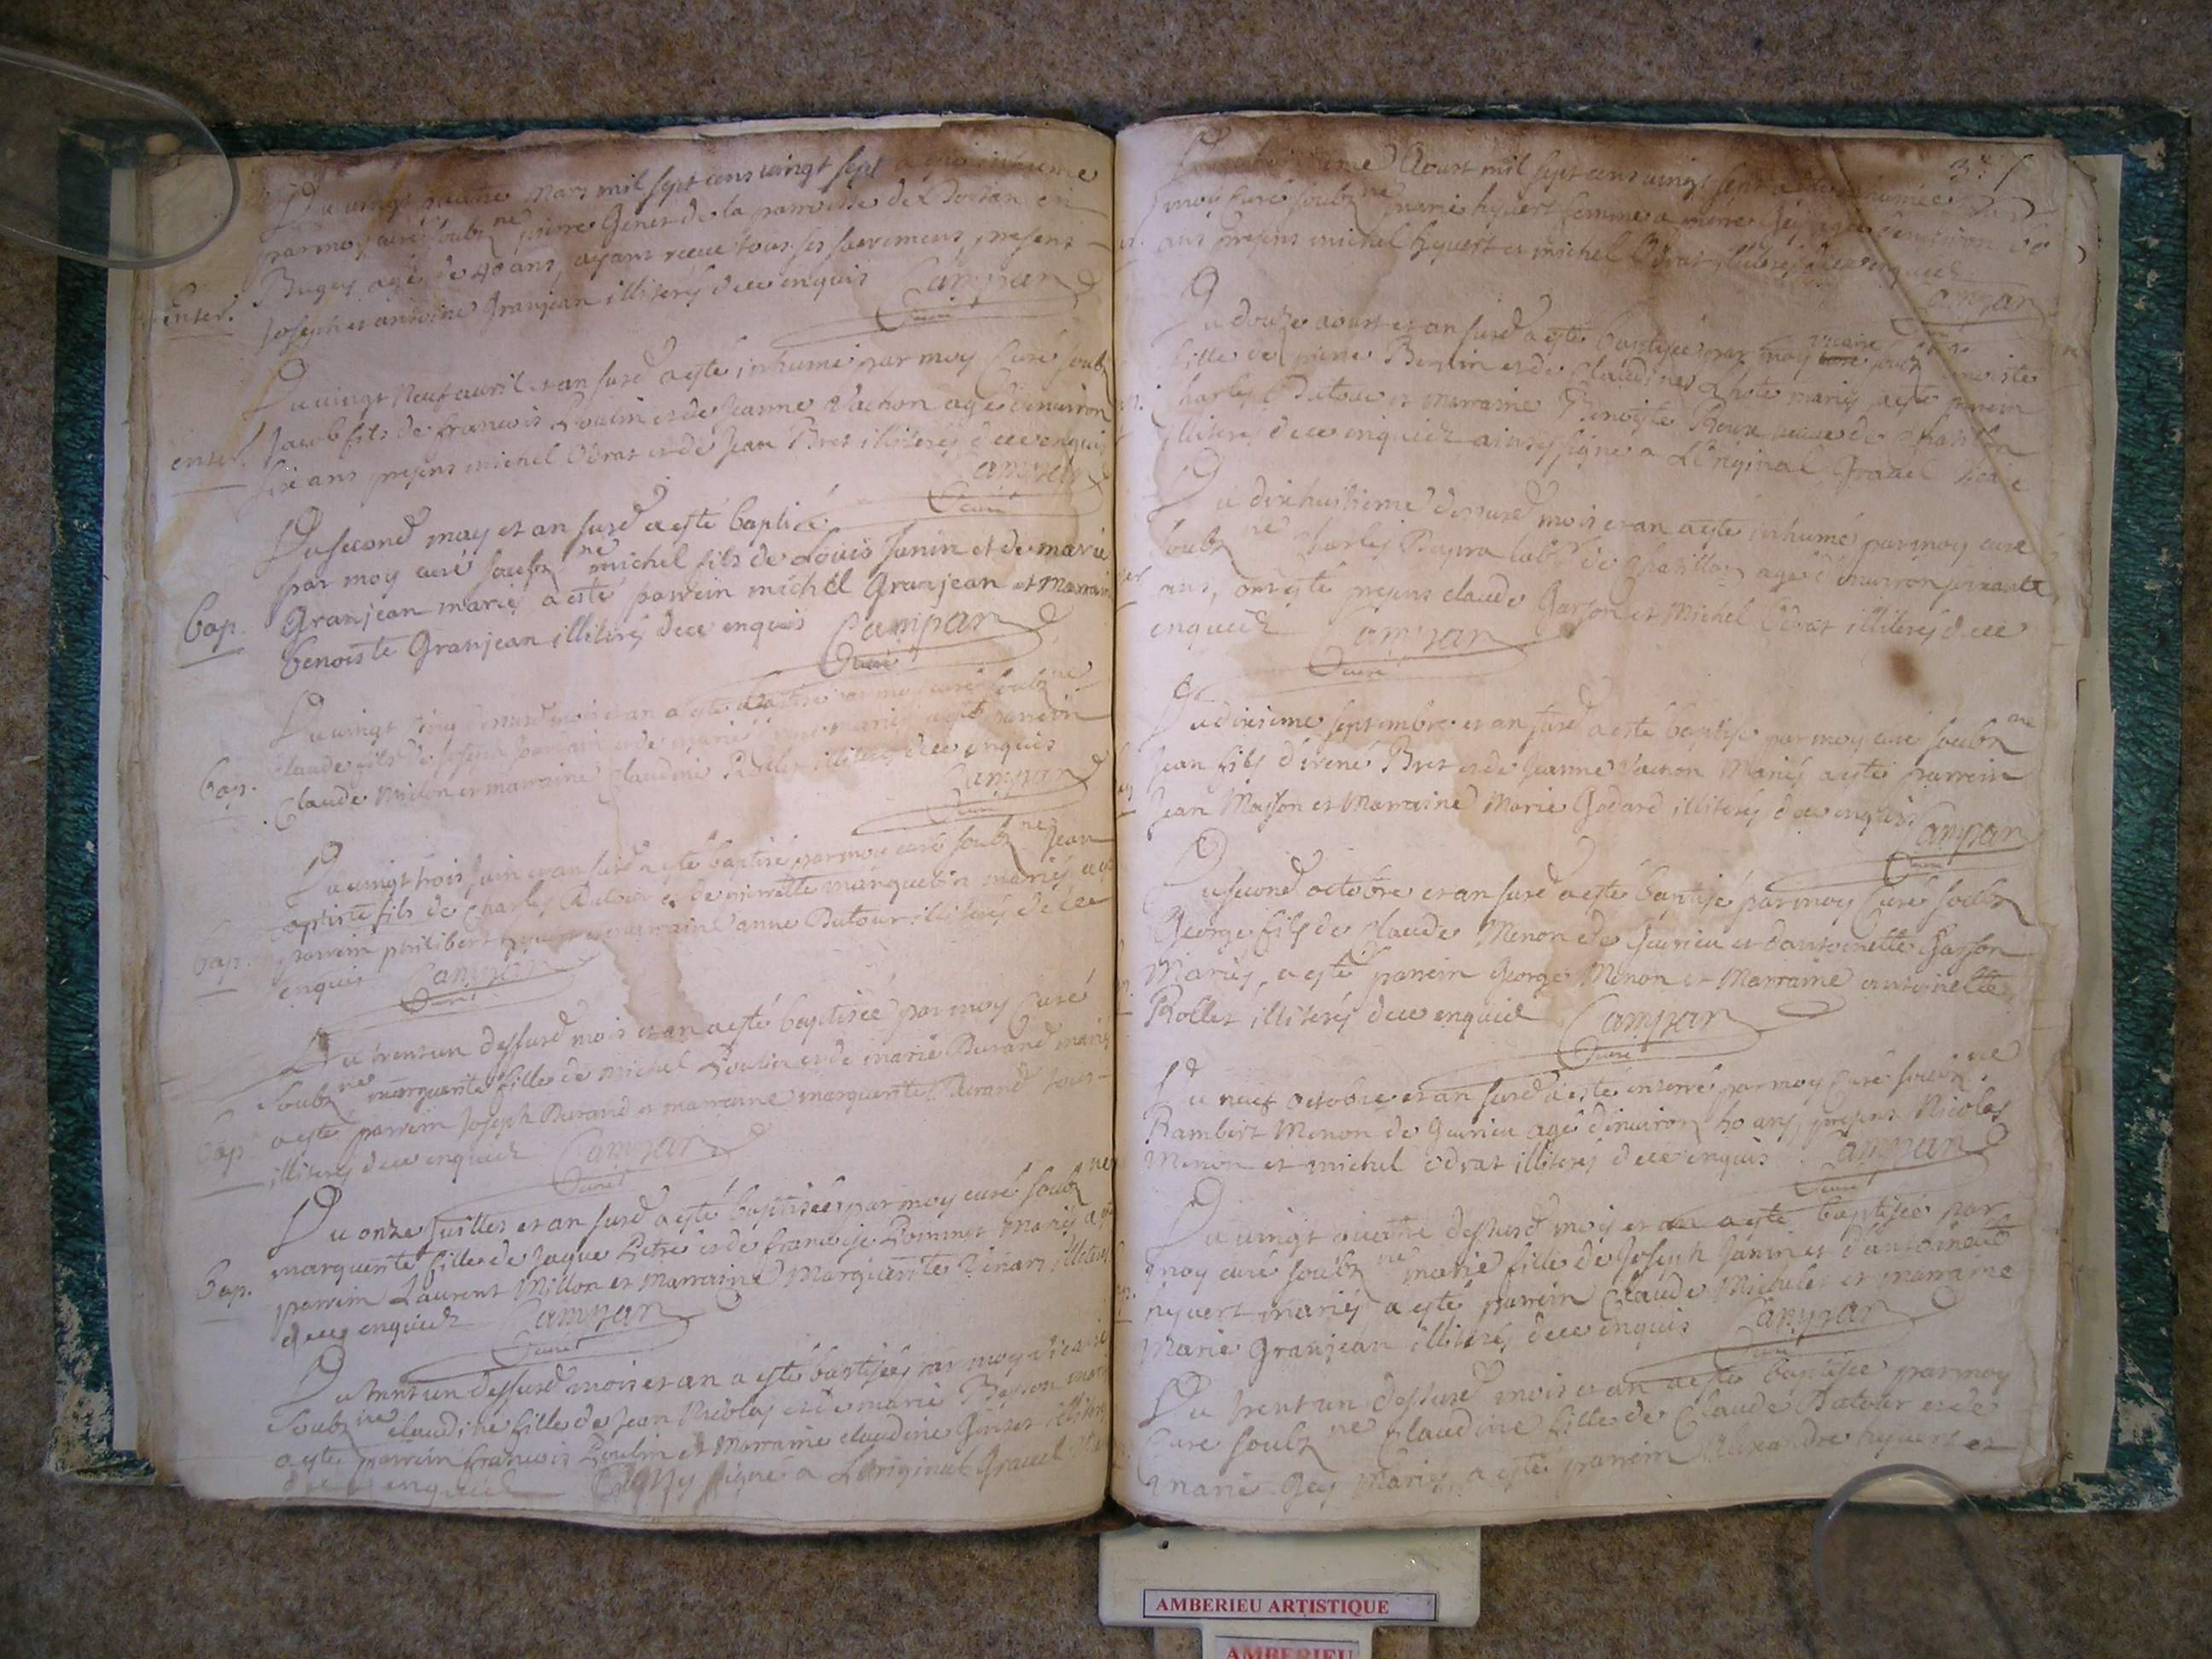 Du vingt quatre Mars mil sept cens vingt sept a esté inhumé
par moy curé soubzne pierre Genet de la parroisse de Dortan en
Bugey agé de 40 ans, ayant receu tous ses sacremens, presens
enter. Joseph et antoine Granjean illiterés de ce enquis Campan
Curé
Du vingt Neuf auril et an susd a esté inhumé par moy Curé soubz
Jacob fils de francois Poulin et de Jeanne Vachon agé denuiron
enter. six ans presens michel Odrat et de Jean Bret illiterés de ce enquis
Campan
Curé
Du second may et an susd a esté baptisé
par moy curé soubzne michel fils de Louis Janin et de marie
Bap. Granjean mariés a esté parrein michel Granjean et Marraine
benoiste Granjean illiterés de ce enquis Campan
Curé
Du vingt cinq dessusd mois et an a esté baptisé par moy curé soubzne
Claude fils de Joseph et de marie mariés a esté parrein
Bap. Claude Milon et marraine Claudine illiterés de ce enquis
Campan
Curé
Du vingt trois Juin et an susd a esté baptisé par moy curé soubzne Jean
baptiste fils de Charles Dutour et de pierrette marguebin mariés a esté
Bap. parrein philibert hyuert et marraine anne Dutour illiterés de ce
enquis Campan
Curé
Du trent un dessusd mois et an a esté baptisée par moy Curé
Soubzne marguerite fille de michel Poulin et de marie Durand mariés
Bap. a esté parrein Joseph Durand et marraine marguerite Durand tous
illiterés de ce enquis Campan
Curé
Du onze Juillet et an susd a esté baptisée par moy curé soubzne
marguerite fille de Jaque Pitre et de francoise Pommet mariés a esté
Bap. parrein Laurent Millon et Marraine Marguerite illiterés
de ce enquis Campan
Curé
Du trent un dessusd mois et an a esté baptisée par moy vicaire
Soubzne claudine fille de Jean Nicolas et de marie Basson mariés
a esté parrein francois Poulin et Marraine claudine Genet illiterés
de ce enquis signé a L'original Grauel
Aoust mil sept cens vingt sept a esté inhumée
par moy Curé soubzne marie hyuert femme a pierre Gey agée denuiron 60
ans presens michel hyuert et michel Odrat illiterés de ce enquis
Campan
Curé
Du douze aoust et an susd a esté baptisée par moy vicaire soubzne benoiste
fille de pierre Berlin et de claudine Lhote mariés a esté parrein
Charles Dutour et marraine Benoiste Roux veuve de
illiterés de ce enquis ainsy signé a L'original Grauel vicaire
Du dixhuitieme dessusd mois et an a esté inhumé par moy curé
Soubzne Charles Bapra labr de Chatillon agé denuiron soixante
ans, ont esté presens claude Garson et Michel Odrat illiterés de ce
enquis Campan
Curé
Du dixieme septembre et an susd a esté baptisé par moy curé soubzne
Jean fils d'irené Bret et de Jeanne Vachon Mariés a esté parrein
Jean Masson et Marraine Marie Godard illiterés de ce enquis Campan
Curé
Du second octobre et an susd a esté baptisé par moy Curé soubz
George fils de claude Menon de Gurieu et d'antoinette Garson
Mariés, a esté parrein George Menon et Marraine antoinette
Rollet illiterés de ce enquis Campan
Curé
Du neuf octobre et an susd a esté enterré par moy Curé soubzne
Rambert Menon de Gurieu agé denuiron 40 ans, presens Nicolas
Menon et michel Odrat illiterés de ce enquis Campan
Curé
Du vingt quatre dessusd mois et an a esté baptisée par
moy curé soubzne marie fille de Joseph Janin et d'antoinette
hyuert mariés a esté parrein Claude Michelet et marraine
Marie Granjean illiterés de ce enquis Campan
Curé
Du trent un dessusd mois et an a esté baptisée par moy
Curé soubzne Claudine fille de Claude Dutour et de
Marie Gey Mariés, a esté parrein Alexandre hyuert et
AMBERIEU ARTISTIQUE
AMBERIEU